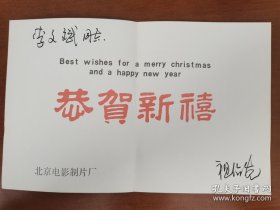 李文斌同志:
Best wishes for a merry christmas
and a happy new year
恭賀新禧
北京电影制片厂